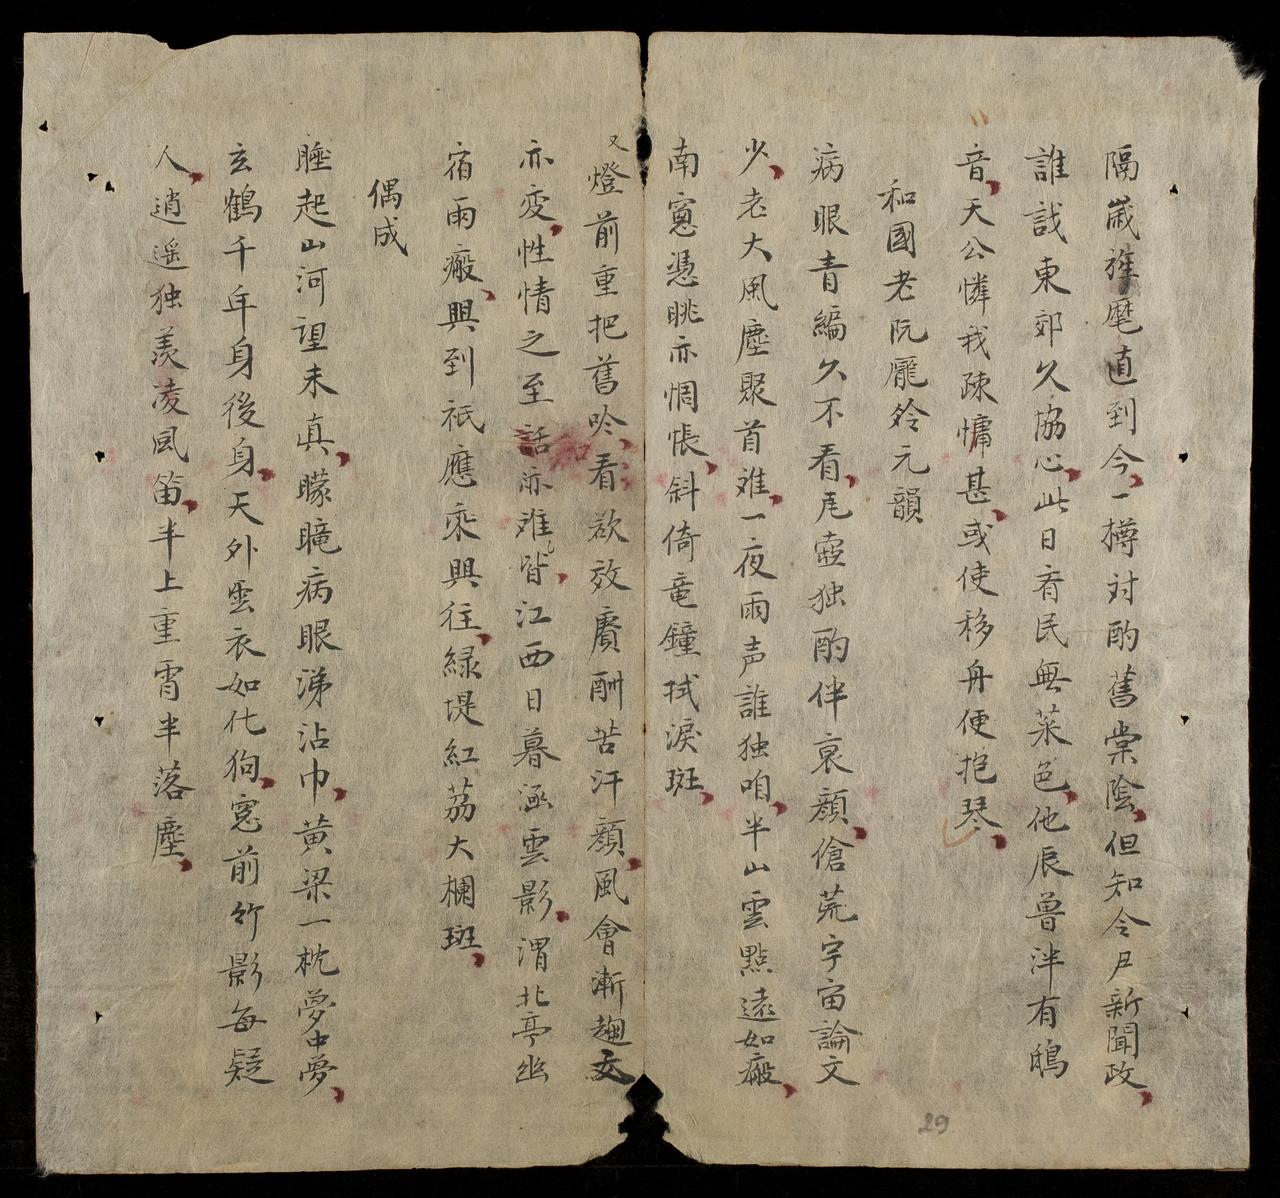 隔歲旌麾直到今一樽对酌舊棠陰但知令尹新聞政
誰識東郊久協心此日看民無菜色他辰魯泮有鴞
音天公憐我疎慵甚或使移舟便抱琴
和國老阮龐舲元韻
病眼青編久不看瓦壺独酌伴衰顔傖荒宇宙論文
少老大風塵聚首难一夜雨声誰独咱半山雲點遠如癜
南窻憑眺亦惆悵斜倚竜鐘拭淚斑
又燈前重把舊吟看欲效賡酬苦汗顔風會漸趨文
亦变性情之至話亦难皆江西日暮涵雲影渭北亭幽
宿雨瘢興到祇應乘興往緑堤紅荔大欄斑
偶成
睡起山河望未真矇矓病眼涕沾巾黄梁一枕夢中夢
玄鶴千年身後身天外雲衣如化狗窻前竹影每疑
人逍遥独羡凌風笛半上重霄半落塵
29